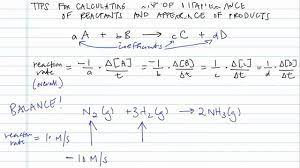 TIPS FOR CALCULATING OF
OF REACTANTS AND APPEARANCE OF PRODUCTS
aA + bB → cC + dD
coefficients
reaction rate (overall) = -1/a · Δ[A]/t = -1/b · Δ[B]/Δt = 1/c · Δ[C]/Δt = 1/d Δ[D]/Δt
BALANCE! N₂(g) + 3H₂(g) → 2NH₃(g)
reaction rate = 10 M/s
-10 M/s